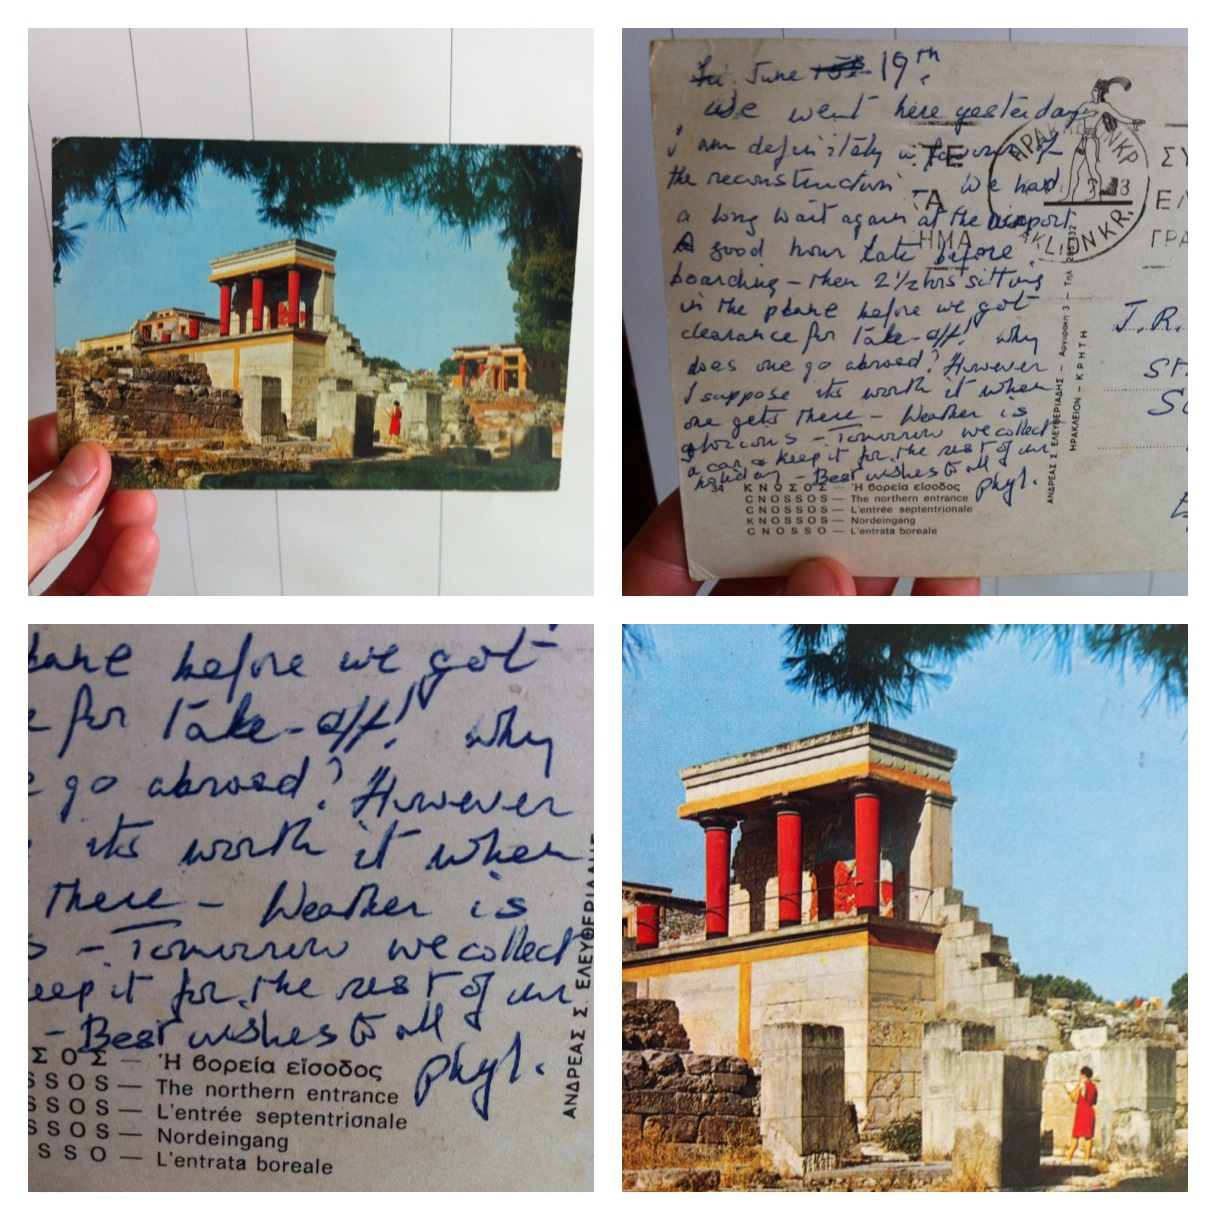 Fri. June 19th
We went here yesterday
I am definitely in favour of
the reconstruction. We had
a long wait again at the airport
A good hour late before
boarding – then 2½ hrs sitting
in the plane before we got
clearance for take-off! Why
does one go abroad? However
I suppose its worth it when
one gets there – Weather is
glorious – Tomorrow we collect
a car & keep it for the rest of our
holiday – Best wishes to all of
phyl.
34 ΚΝΩΣΟΣ — Ἡ βορεία εἴσοδος
CNOSSOS — The northern entrance
CNOSSOS — L'entrée septentrionale
KNOSSOS — Nordeingang
CNOSSO — L'entrata boreale
ΑΝΔΡΕΑΣ Σ. ΕΛΕΥΘΕΡΙΑΔΗΣ — Αργυράκη 3 — Τηλ.
ΗΡΑΚΛΕΙΟΝ — ΚΡΗΤΗ
ΤΕ
ΤΑ
ΗΜΑ
ΣΥ
ΕΛ
ΓΡΑ
J.R.
St.
plane before we got
e for take-off! Why
e go abroad? However
its worth it when
there – Weather is
s – Tomorrow we collect
keep it for the rest of our
– Best wishes to all of
phyl.
ΣΟΣ — Ἡ βορεία εἴσοδος
SSOS — The northern entrance
SSOS — L'entrée septentrionale
SSOS — Nordeingang
SSO — L'entrata boreale
ΑΝΔΡΕΑΣ Σ. ΕΛΕΥΘΕΡΙΑΔΗΣ